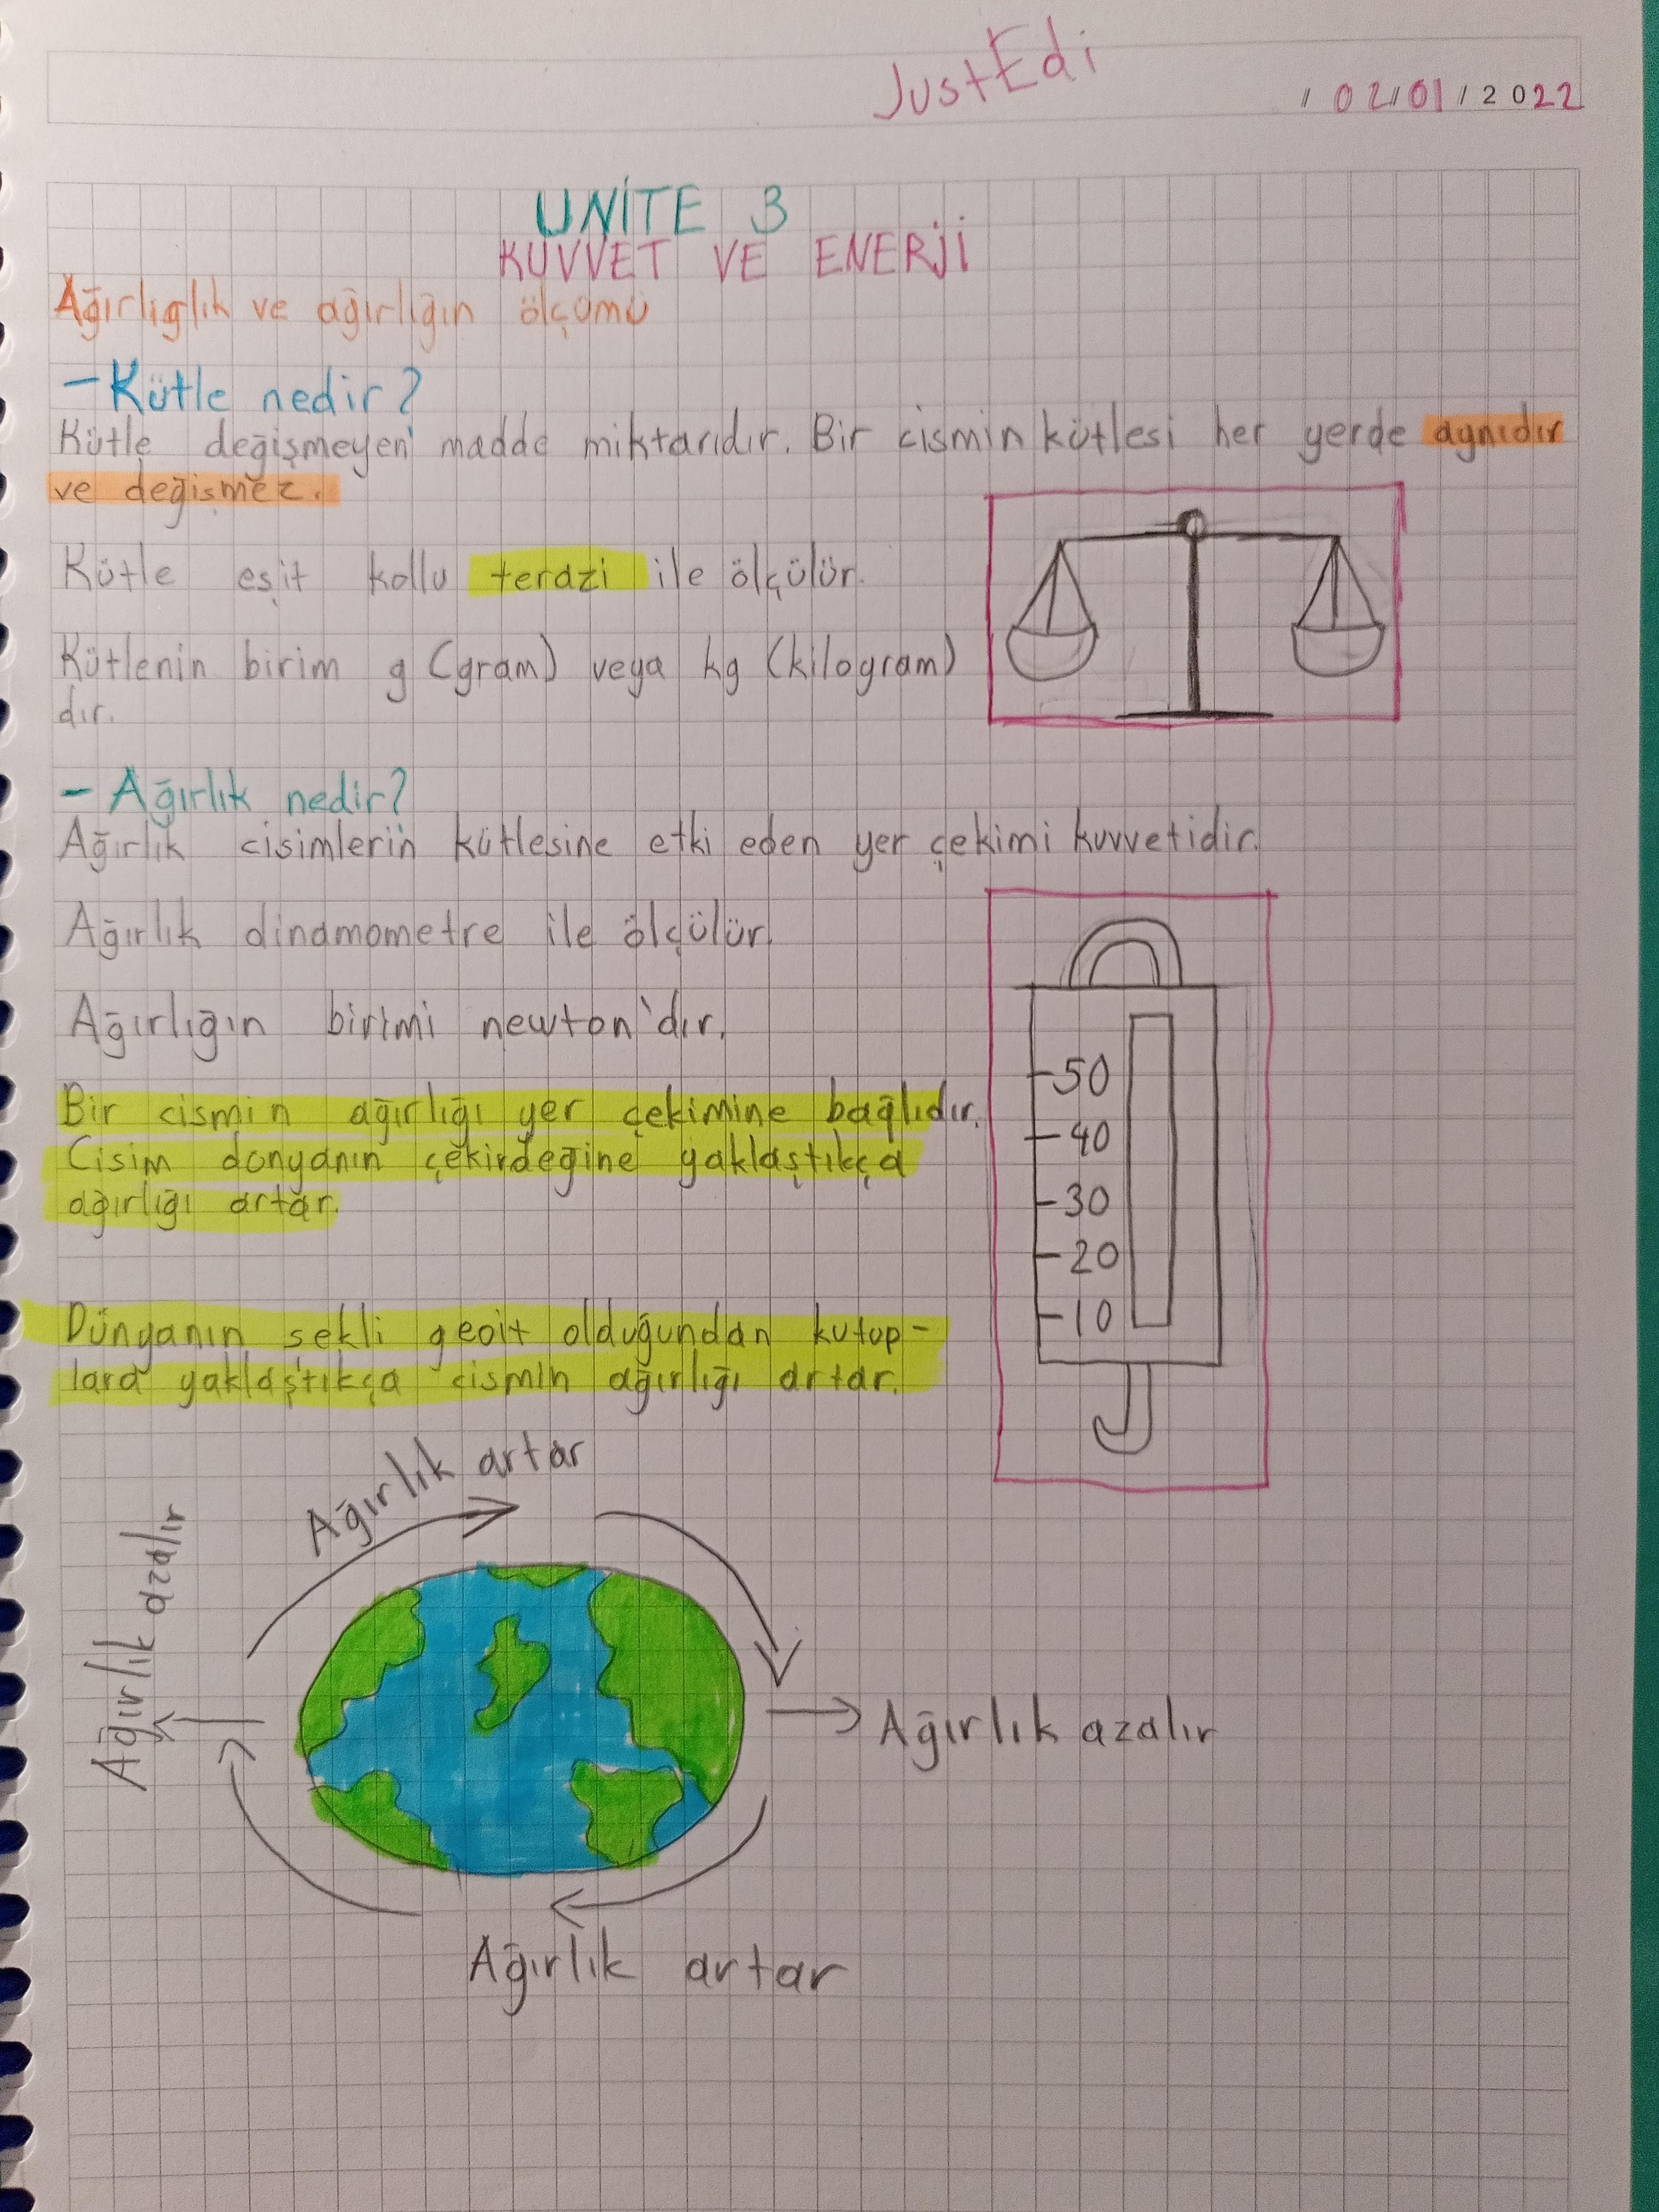 JustEdi
/ 02/01/2022
UNİTE 3
KUVVET VE ENERJİ
Ağırlığlık ve ağırlığın ölçümü
- Kütle nedir?
Kütle değişmeyen madde miktarıdır. Bir cismin kütlesi her yerde aynıdır
ve değişmez.
Kütle eşit kollu terazi ile ölçülür.
Kütlenin birim g (gram) veya kg (kilogram)
dır.
- Ağırlık nedir?
Ağırlık cisimlerin kütlesine etki eden yer çekimi kuvvetidir.
Ağırlık dinamometre ile ölçülür.
Ağırlığın birimi newton'dır.
Bir cismin ağırlığı yer çekimine bağlıdır.
Cisim donyanın çekirdeğine yaklaştıkça
ağırlığı artar.
50
40
30
20
10
Dünyanın şekli geoit olduğundan kutup-
lara yaklaştıkça cismin ağırlığı artar.
Ağırlık artar
Ağırlık azalır
Ağırlık azalır
Ağırlık artar